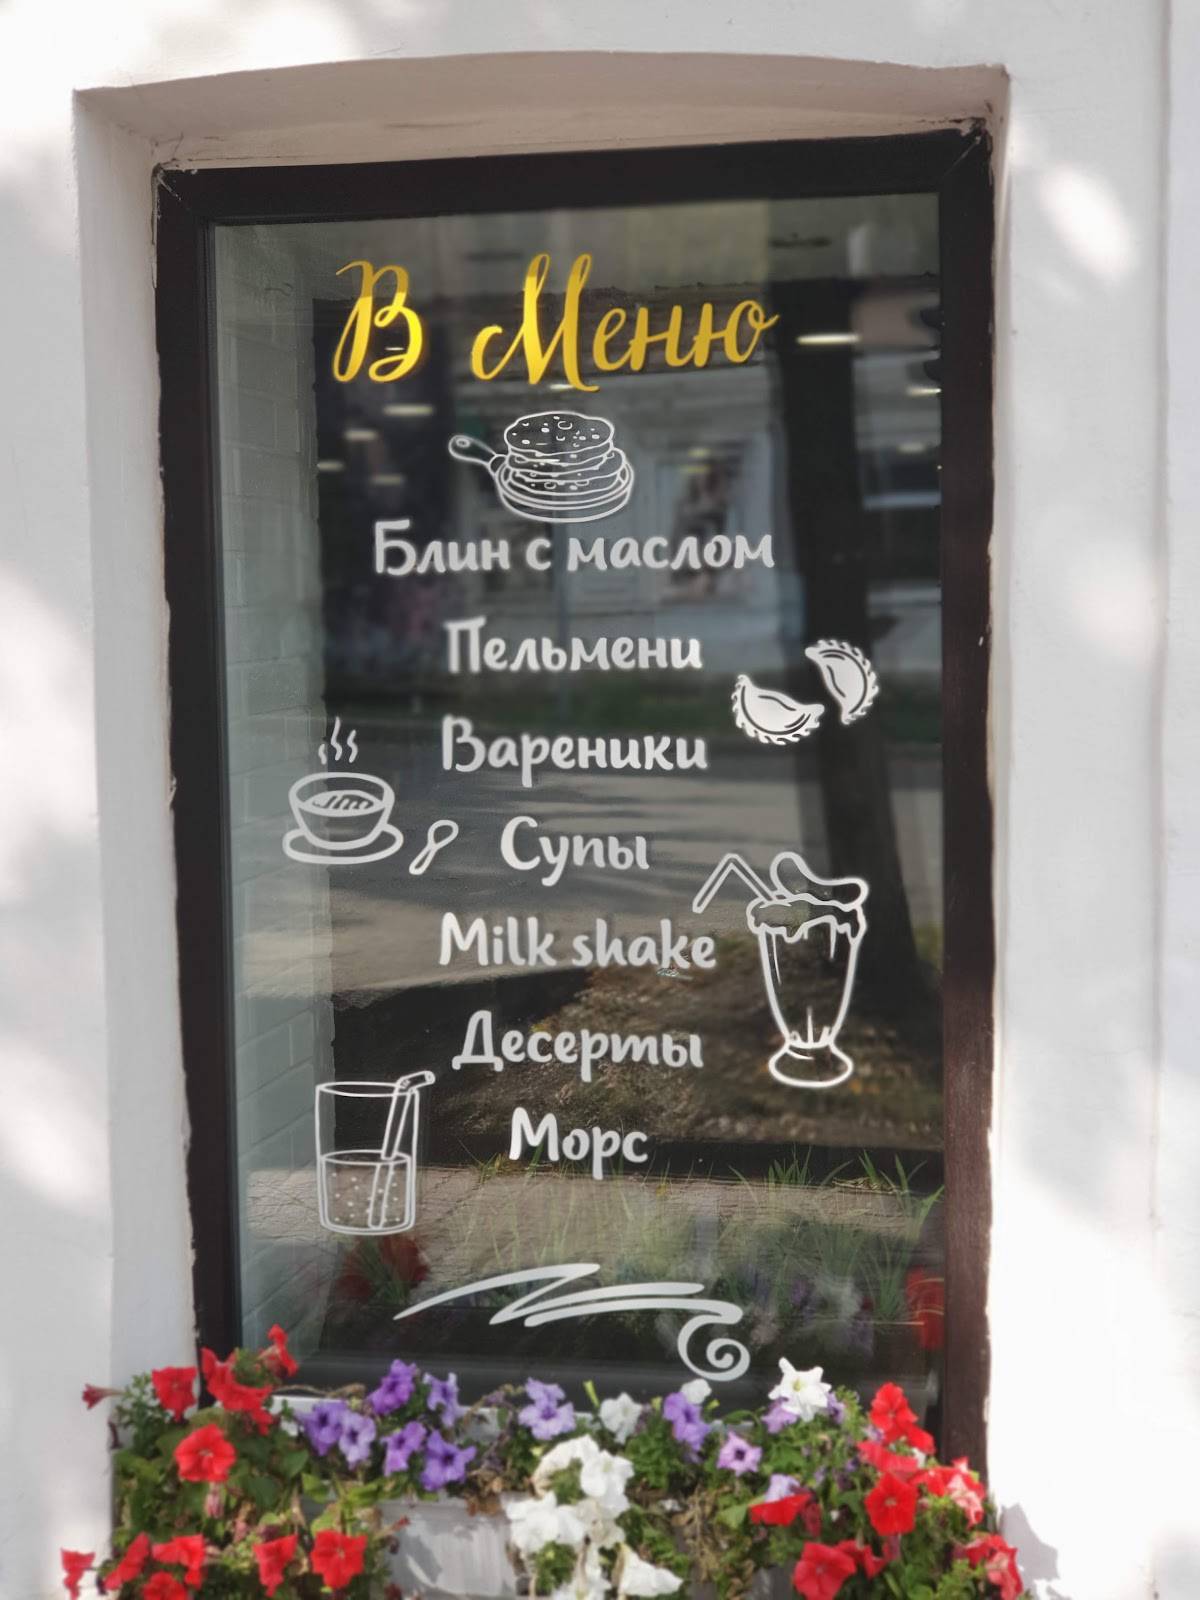 В Меню
Блин с маслом
Пельмени
Вареники
Супы
Milk shake
Десерты
Морс